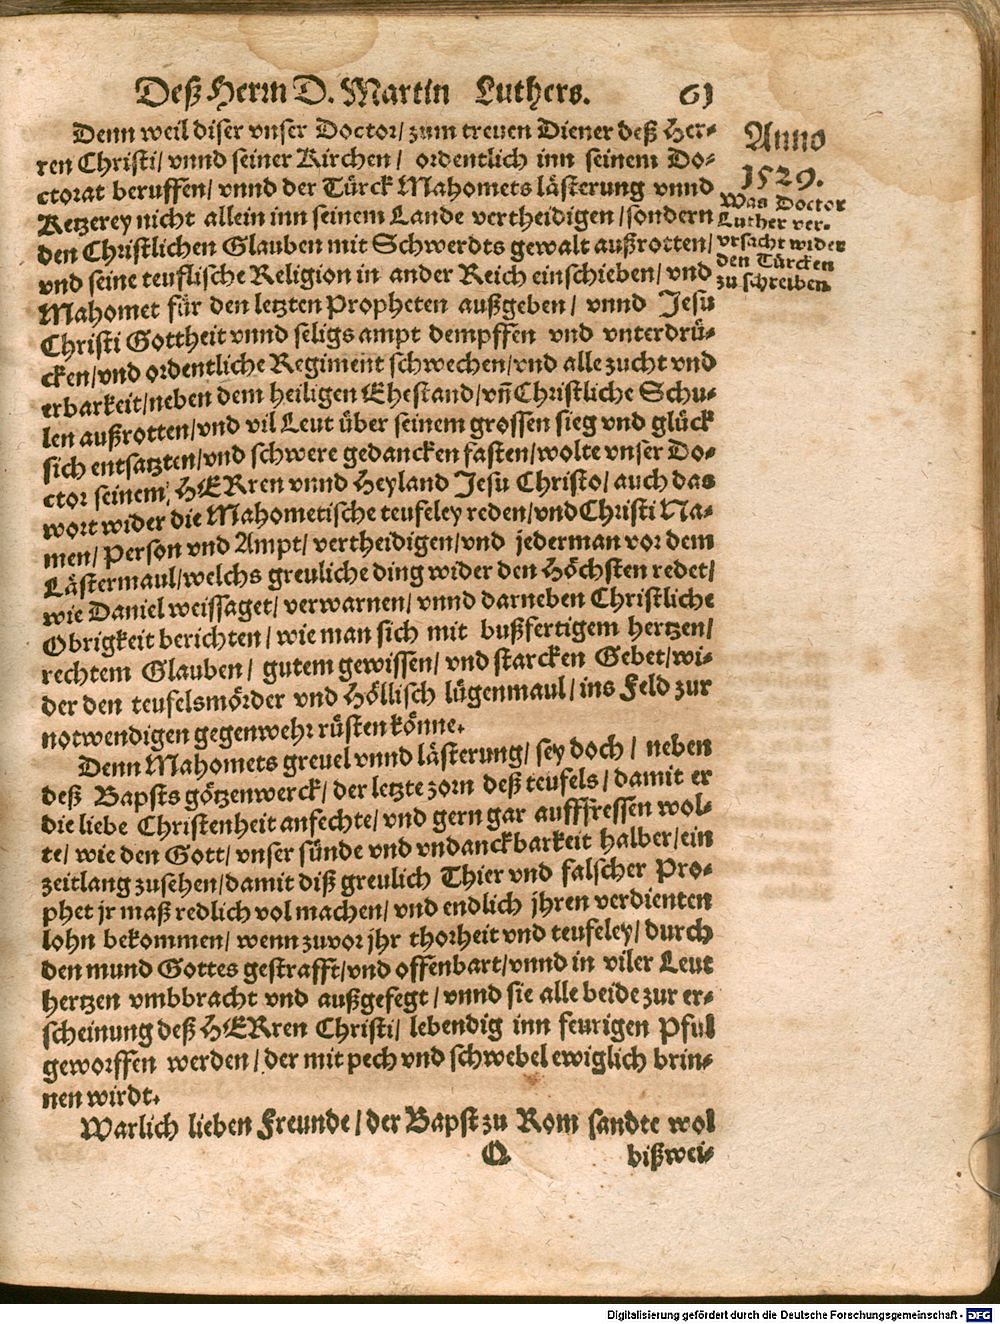 Deß Herrn D. Martin Luthers. 61
Denn weil diser vnser Doctor/ zum treuen Diener deß Her-
ren Christi/ vnnd seiner Kirchen/ ordentlich inn seinem Do-
ctorat beruffen/ vnnd der Türck Mahomets lästerung vnnd
Ketzerey nicht allein inn seinem Lande vertheidigen/ sondern
den Christlichen Glauben mit Schwerdts gewalt außrotten/
vnd seine teuflische Religion in ander Reich einschieben/ vnd
Mahomet für den letzten Propheten außgeben/ vnnd Jesu
Christi Gottheit vnnd seligs ampt dempffen vnd vnterdrü-
cken/ vnd ordentliche Regiment schwechen/ vnd alle zucht vnd
erbarkeit/ neben dem heiligen Ehestand/ vñ Christliche Schu-
len außrotten/ vnd vil Leut über seinem grossen sieg vnd glück
sich entsatzten/ vnd schwere gedancken fasten/ wolte vnser Do-
ctor seinem HERren vnnd Heyland Jesu Christo/ auch das
wort wider die Mahometische teufeley reden/ vnd Christi Na-
men/ Person vnd Ampt/ vertheidigen/ vnd jederman vor dem
Lästermaul/ welchs greuliche ding wider den Höchsten redet/
wie Daniel weissaget/ verwarnen/ vnnd darneben Christliche
Obrigkeit berichten/ wie man sich mit bußfertigem hertzen/
rechtem Glauben/ gutem gewissen/ vnd starcken Gebet/ wi-
der den teufelsmörder vnd Höllisch lügenmaul/ ins Feld zur
notwendigen gegenwehr rüsten könne.
Denn Mahomets greuel vnnd lästerung/ sey doch/ neben
deß Bapsts götzenwerck/ der letzte zorn deß teufels/ damit er
die liebe Christenheit anfechte/ vnd gern gar aufffressen wol-
te/ wie den Gott/ vnser sünde vnd vndanckbarkeit halber/ ein
zeitlang zusehen/ damit diß greulich Thier vnd falscher Pro-
phet jr maß redlich vol machen/ vnd endlich jhren verdienten
lohn bekommen/ wenn zuvor jhr thorheit vnd teufeley/ durch
den mund Gottes gestrafft/ vnd offenbart/ vnnd in viler Leut
hertzen vmbbracht vnd außgefegt/ vnnd sie alle beide zur er-
scheinung deß HERren Christi/ lebendig inn feurigen Pful
geworffen werden/ der mit pech vnd schwebel ewiglich brin-
nen wirdt.
Warlich lieben Freunde/ der Bapst zu Rom sandte wol
Q bißwei-
Anno
1529.
Was Doctor
Luther ver-
vrsacht wider
den Türcken
zu schreiben.
Digitalisierung gefördert durch die Deutsche Forschungsgemeinschaft - DFG